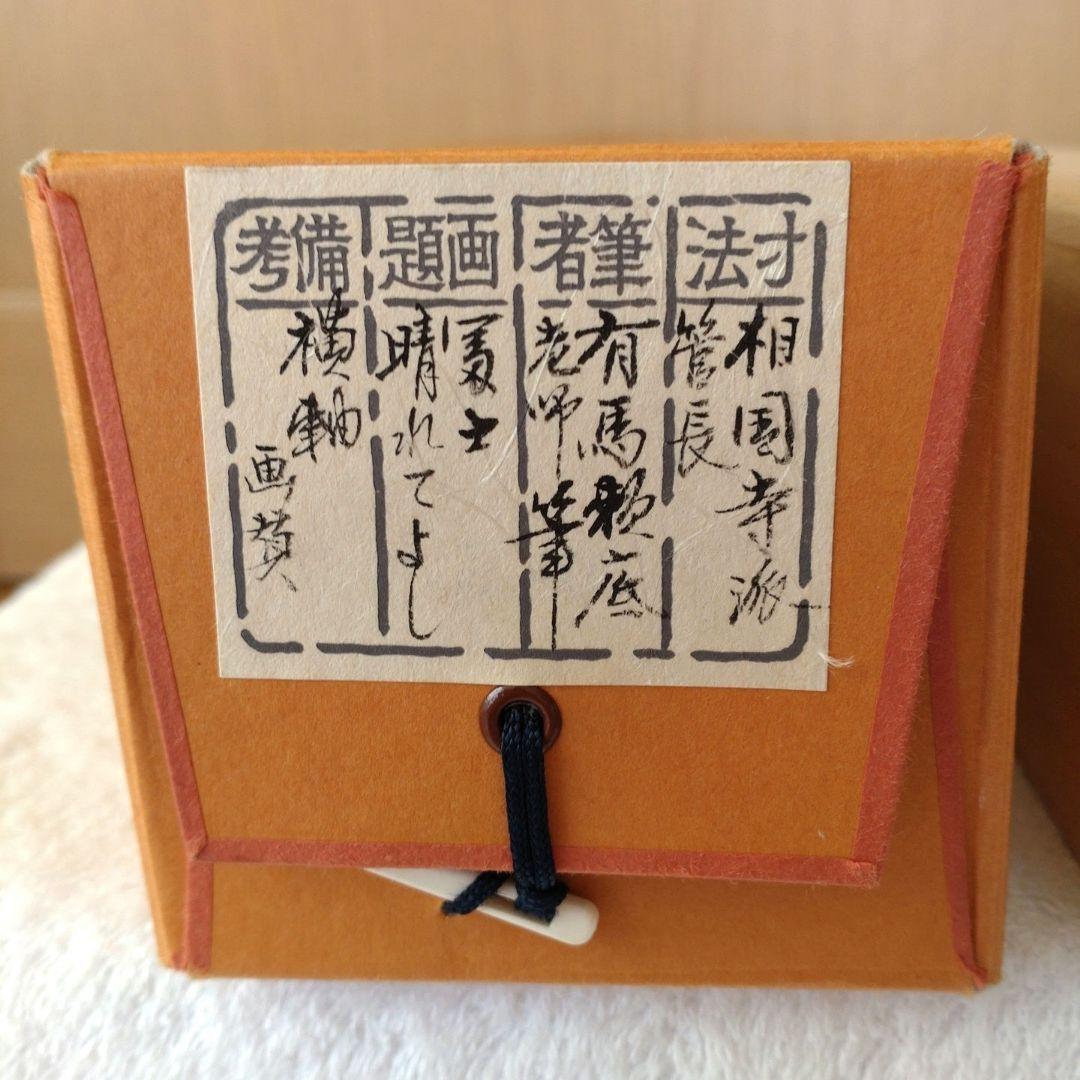 才法
相国寺派
管長
筆者
有馬頼底
老師 筆
画題
冨士
晴れてよし
備考
横軸
画賛